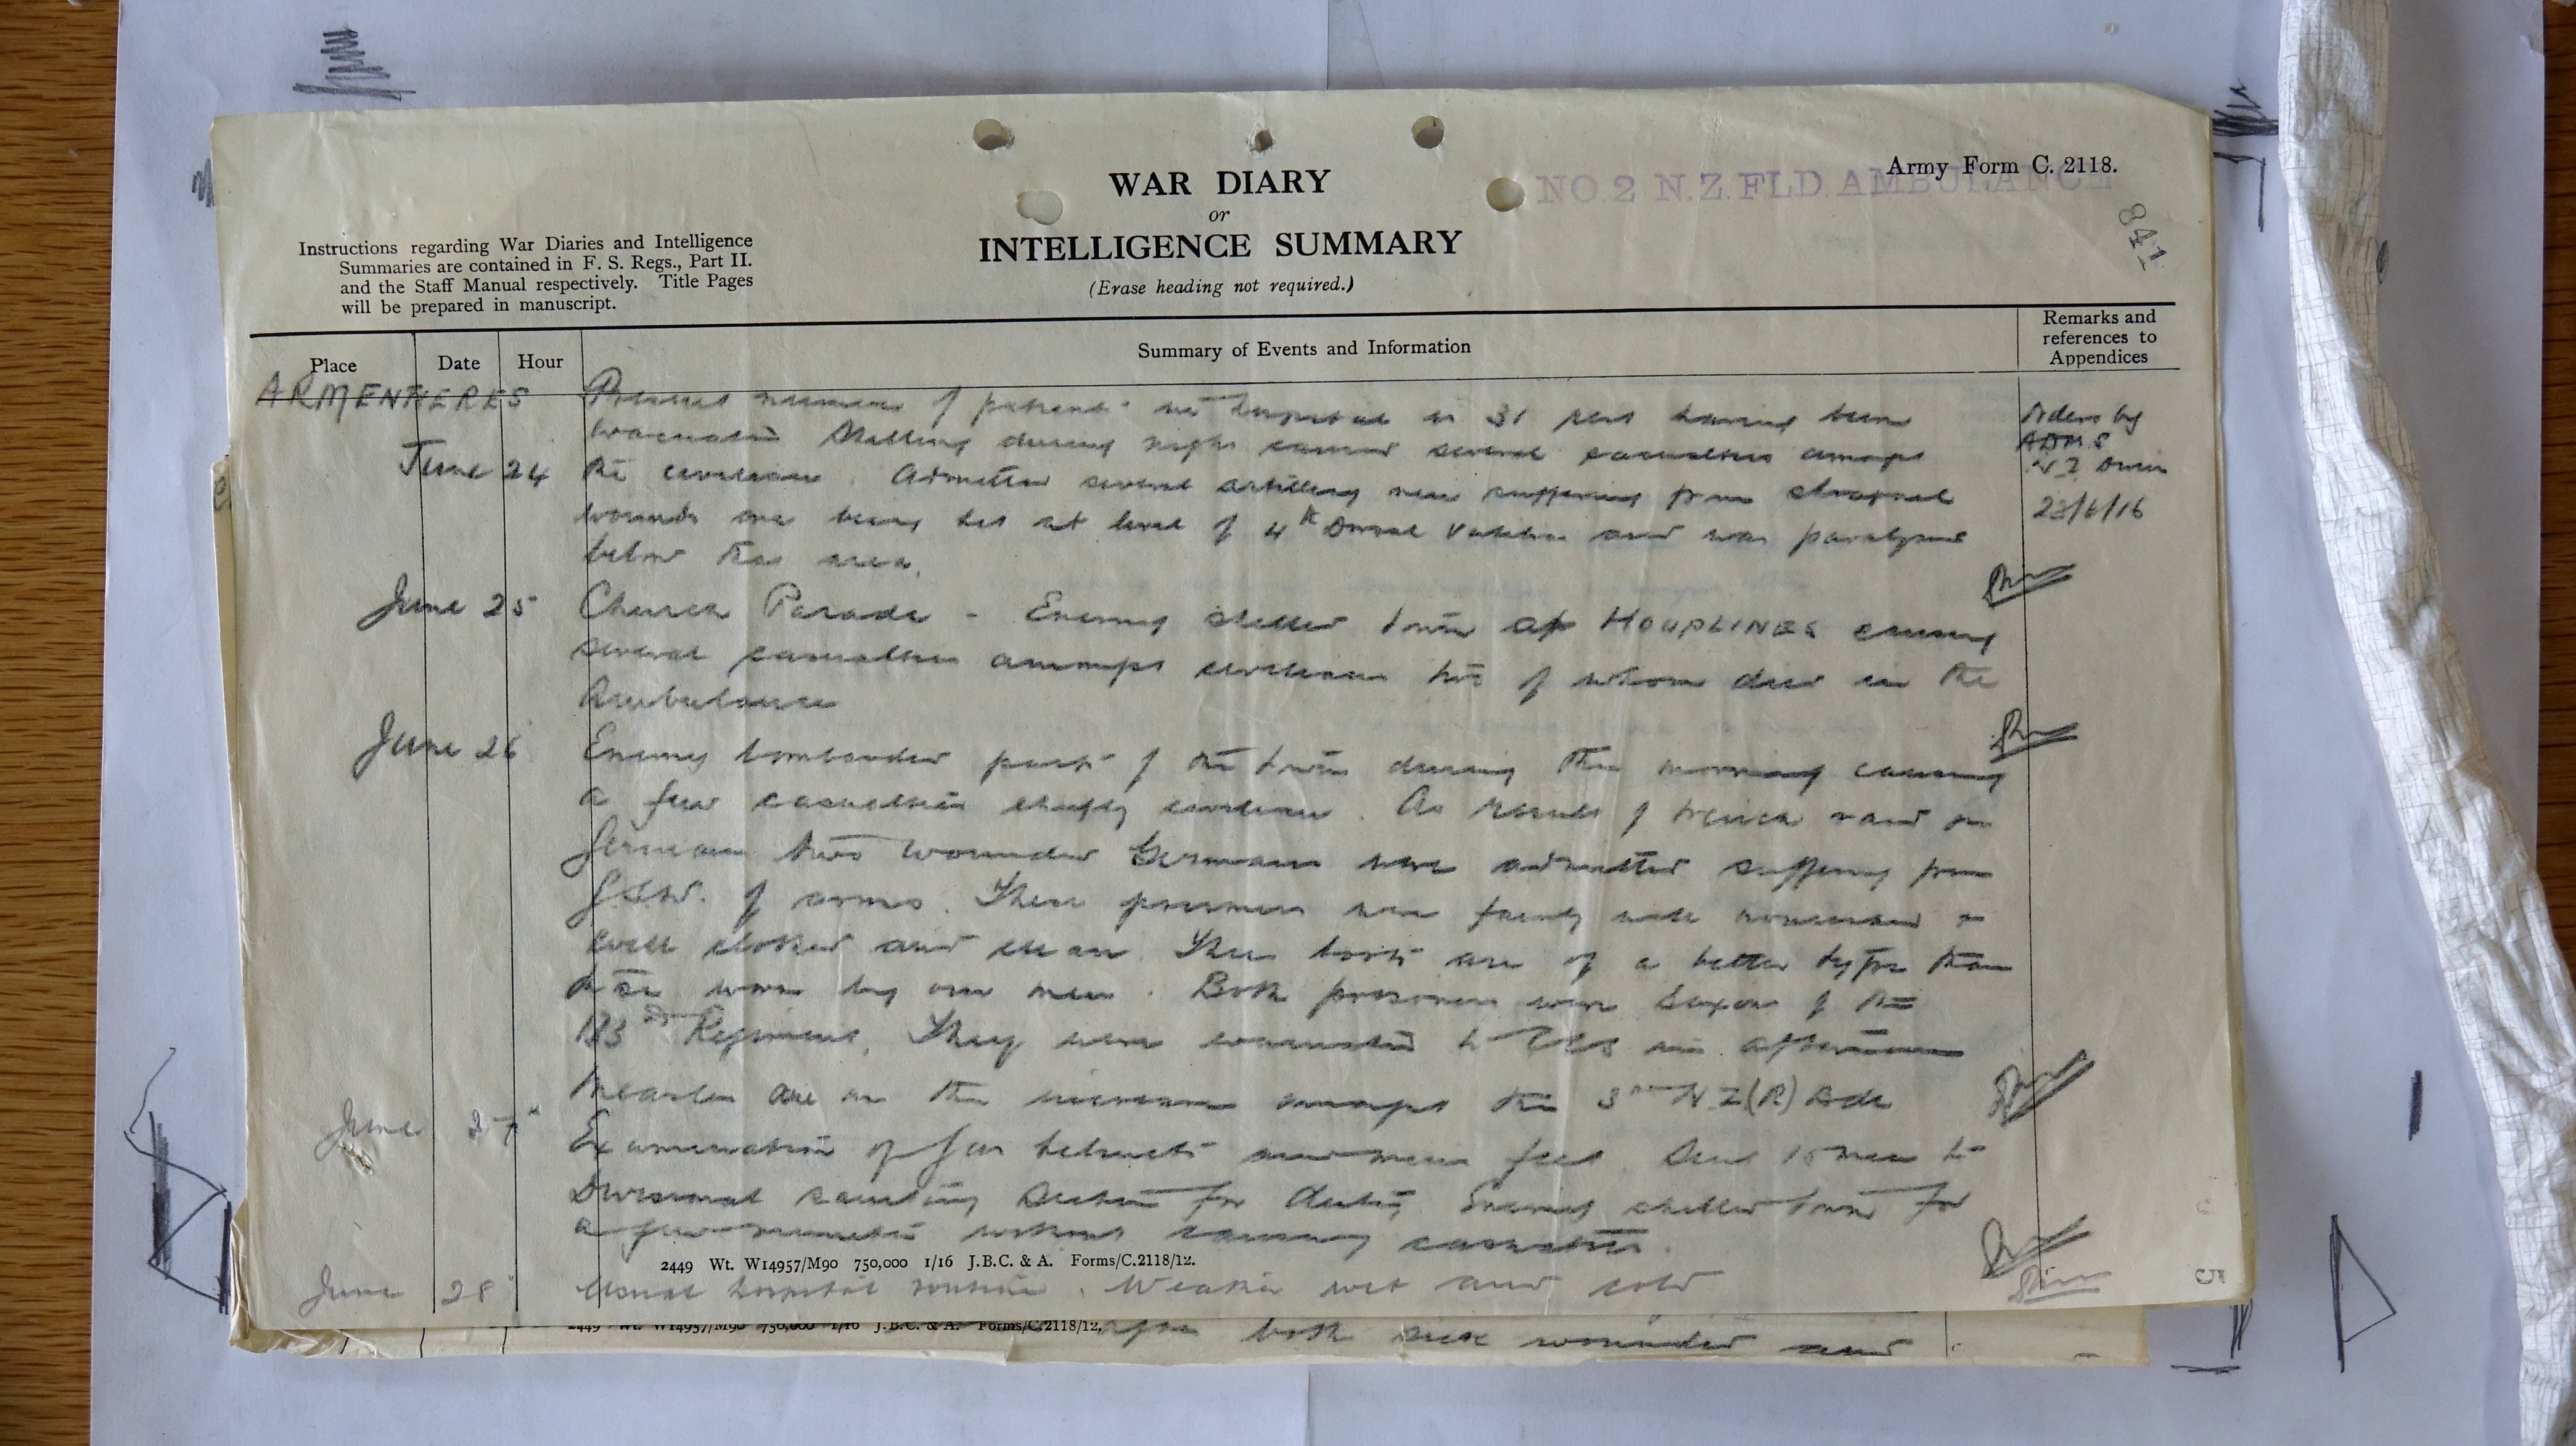 Army Form C. 2118.
NO. 2 N.Z. FLD. AMBULANCE
841
WAR DIARY
or
INTELLIGENCE SUMMARY
(Erase heading not required.)
Instructions regarding War Diaries and Intelligence
Summaries are contained in F. S. Regs., Part II.
and the Staff Manual respectively. Title Pages
will be prepared in manuscript.
Place Date Hour Summary of Events and Information Remarks and references to Appendices
ARMENTIERES
Present number of patients in hospital is 31 rest having been
evacuated Shelling during night caused several casualties amongst
June 24 the civilians. Admitted several artillery men suffering from shrapnel
wounds one being hit at level of 4th Dorsal Vertebra and was paralysed
below this area.
Orders by
ADMS
N Z Divn
23/6/16
June 25 Church Parade - Enemy shelled town of HOUPLINES causing
several casualties amongst civilians two of whom died in the
Ambulance
June 26 Enemy bombarded part of the town during the morning causing
a few casualties chiefly civilians. As result of trench raid on
Germans two wounded Germans were admitted suffering from
G.S.W. of arms. These prisoners were fairly well nourished
well clothed and clean. Their boots are of a better type than
those worn by our men. Both prisoners were Saxons of the
Regiment. They were evacuated to CCS in afternoon
Measles are on the increase amongst the 3rd N.Z.(R) Bde
June 27th Examination of Gas helmets and mens feet. Sent 15 men to
Divisional Sanitary Section for duty. Enemy shelled town for
a few minutes without causing casualties.
2449 Wt. W14957/M90 750,000 1/16 J.B.C. & A. Forms/C.2118/12.
June 28th Usual hospital routine. Weather wet and cold
5
2449 Wt. W14957/M90 750,000 1/16 J.B.C. & A. Forms/C.2118/12.
both sick wounded and